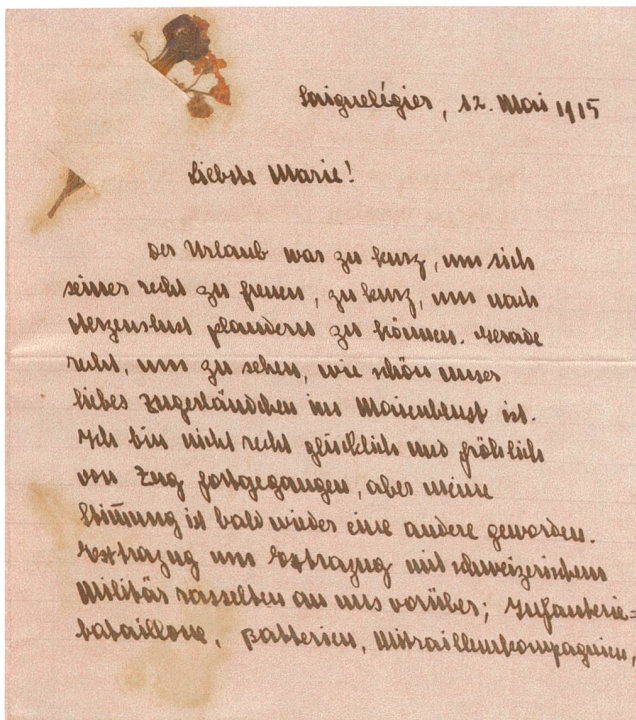 Saignelégier, 12. Mai 1915
Liebste Marie!
Der Urlaub war zu kurz, um sich
seiner recht zu freuen, zu kurz, um nach
Herzenslust plaudern zu können. Gerade
recht, um zu sehen, wie schön unser
liebes Zugerländchen im Maienblust ist.
Ich bin nicht recht glücklich und fröhlich
von Zug fortgegangen, aber meine
Stim̅ung ist bald wieder eine andere geworden.
Extrazug um Extrazug mit schweizerischem
Militär rasselten an uns vorüber; Infanterie=
bataillone, Batterien, Mitrailleurkompagnien,